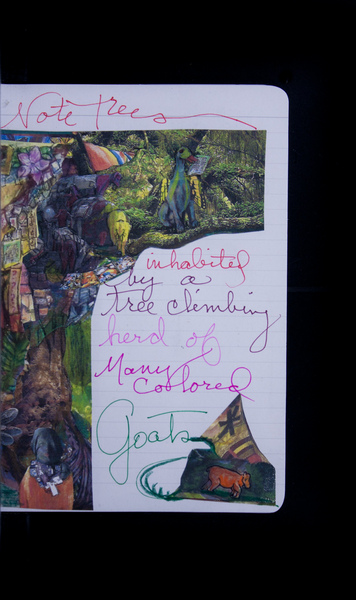 Note Trees
inhabited
by a
tree climbing
herd of
Many
Colored
Goats